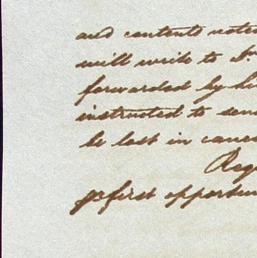 and contents noted
will write to Dr
forwarded by
instructed to sen
be lost in
Reg
first opportun